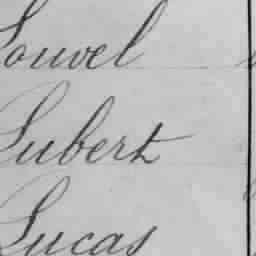 Louvel
Lubert
Lucas